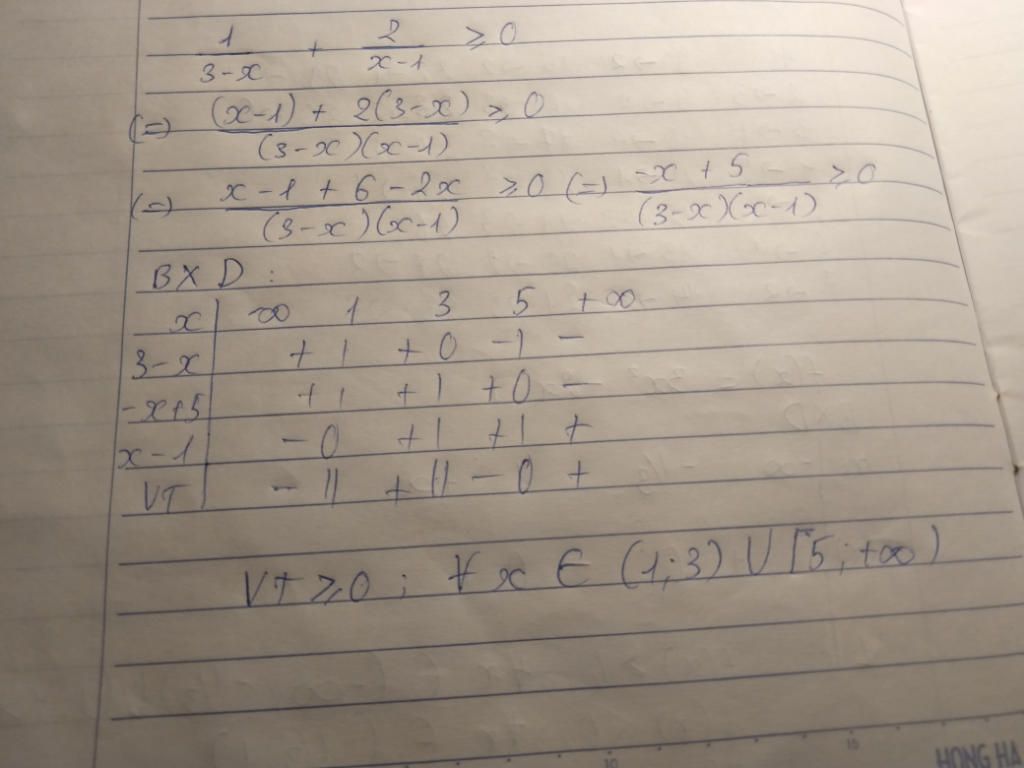 1/(3-x) + 2/(x-1) ≥ 0
(=) ((x-1) + 2(3-x))/((3-x)(x-1)) ≥ 0
(=) (x-1+6-2x)/((3-x)(x-1)) ≥ 0 (=) (-x+5)/((3-x)(x-1)) ≥ 0
BXD:
x | -∞ 1 3 5 +∞
3-x | + | + 0 - | -
-x+5 | + | + | + 0 -
x-1 | - 0 + | + | +
VT | - || + || - 0 +
VT ≥ 0 ; ∀ x ∈ (1;3) ∪ [5;+∞)
10 15
HONG HA